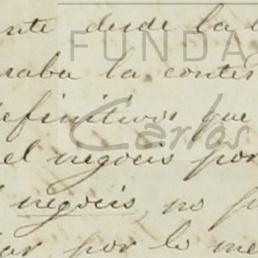 nte desde la
FUNDA
raba la contes
definitivos que
Carlos
el negocio por
negocio, no
por lo me